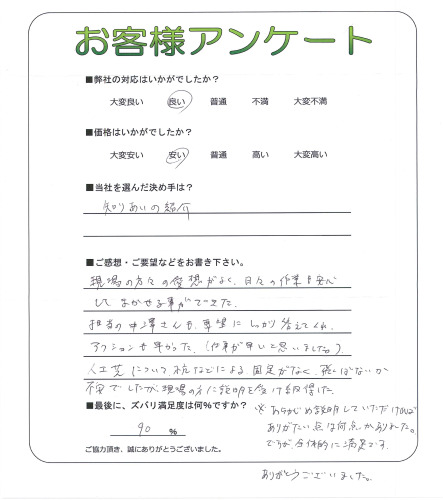 お客様アンケート
■弊社の対応はいかがでしたか？
大変良い 良い 普通 不満 大変不満
■価格はいかがでしたか？
大変安い 安い 普通 高い 大変高い
■当社を選んだ決め手は？
知りあいの紹介
■ご感想・ご要望などをお書き下さい。
現場の方々の愛想がよく、日々の作業も安心
して まかせる事ができました。
担当の中澤さんも、要望に しっかり答えてくれ、
アクションも早かった。（仕事が早いと思いました）。
人工芝について、杭などによる 固定がなく、飛ばないか
不安でしたが、現場の方に説明を受け納得した。
■最後に、ズバリ満足度は何%ですか？
90 %
※あらかじめ説明していただければ
ありがたい点は何点かありました。
ですが、全体的に満足です。
ご協力頂き、誠にありがとうございました。
ありがとうございました。